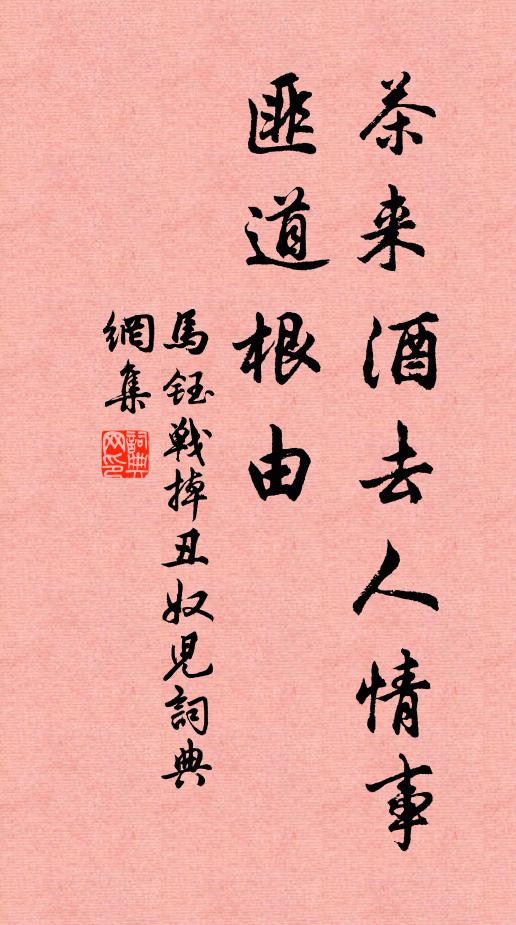 茶来酒去人情事
匪道根由
馬鈺戰掉丑奴兒詞典
網集
詞典網印